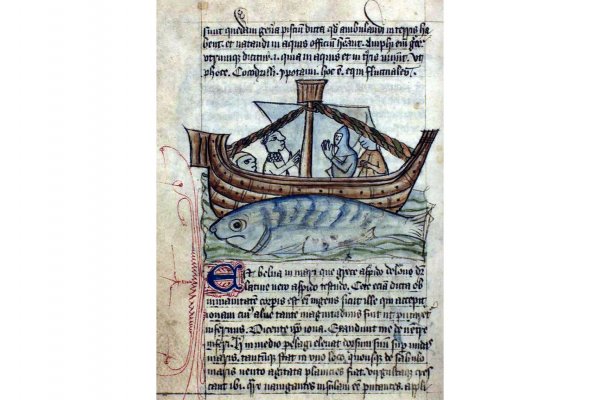 sunt quedam gena pisciu dicta qd ambulandi in terris ha
bent. et natandi in aquis officiu heant. Amphi em gre
utrumque dicitur. i. quia in aquis et in tris uiuut. Vt
phoce. Cocodrilli. ypotami. hoc e. equi fluctuales.
Est belua in mari que grece aspido delone dr
latine uero aspido testudo. Cete eciam dicta ob
inmanitatem corpis est em ingens sicut ille qui accepit
ionam cui alue tante magnitudinis fuit ut putaret
infernus. Dicente ipo iona. Exaudiuit me de uentre
inferi. h in medio pelagi eleuat dorsum suum sup undas
maris. tamdiuq stat in uno loco. quousque de sabulo
maris uento agitata planicies fiat. virgultaq cres
cant ibi. Qr nauigantes insulam ee putantes. appli